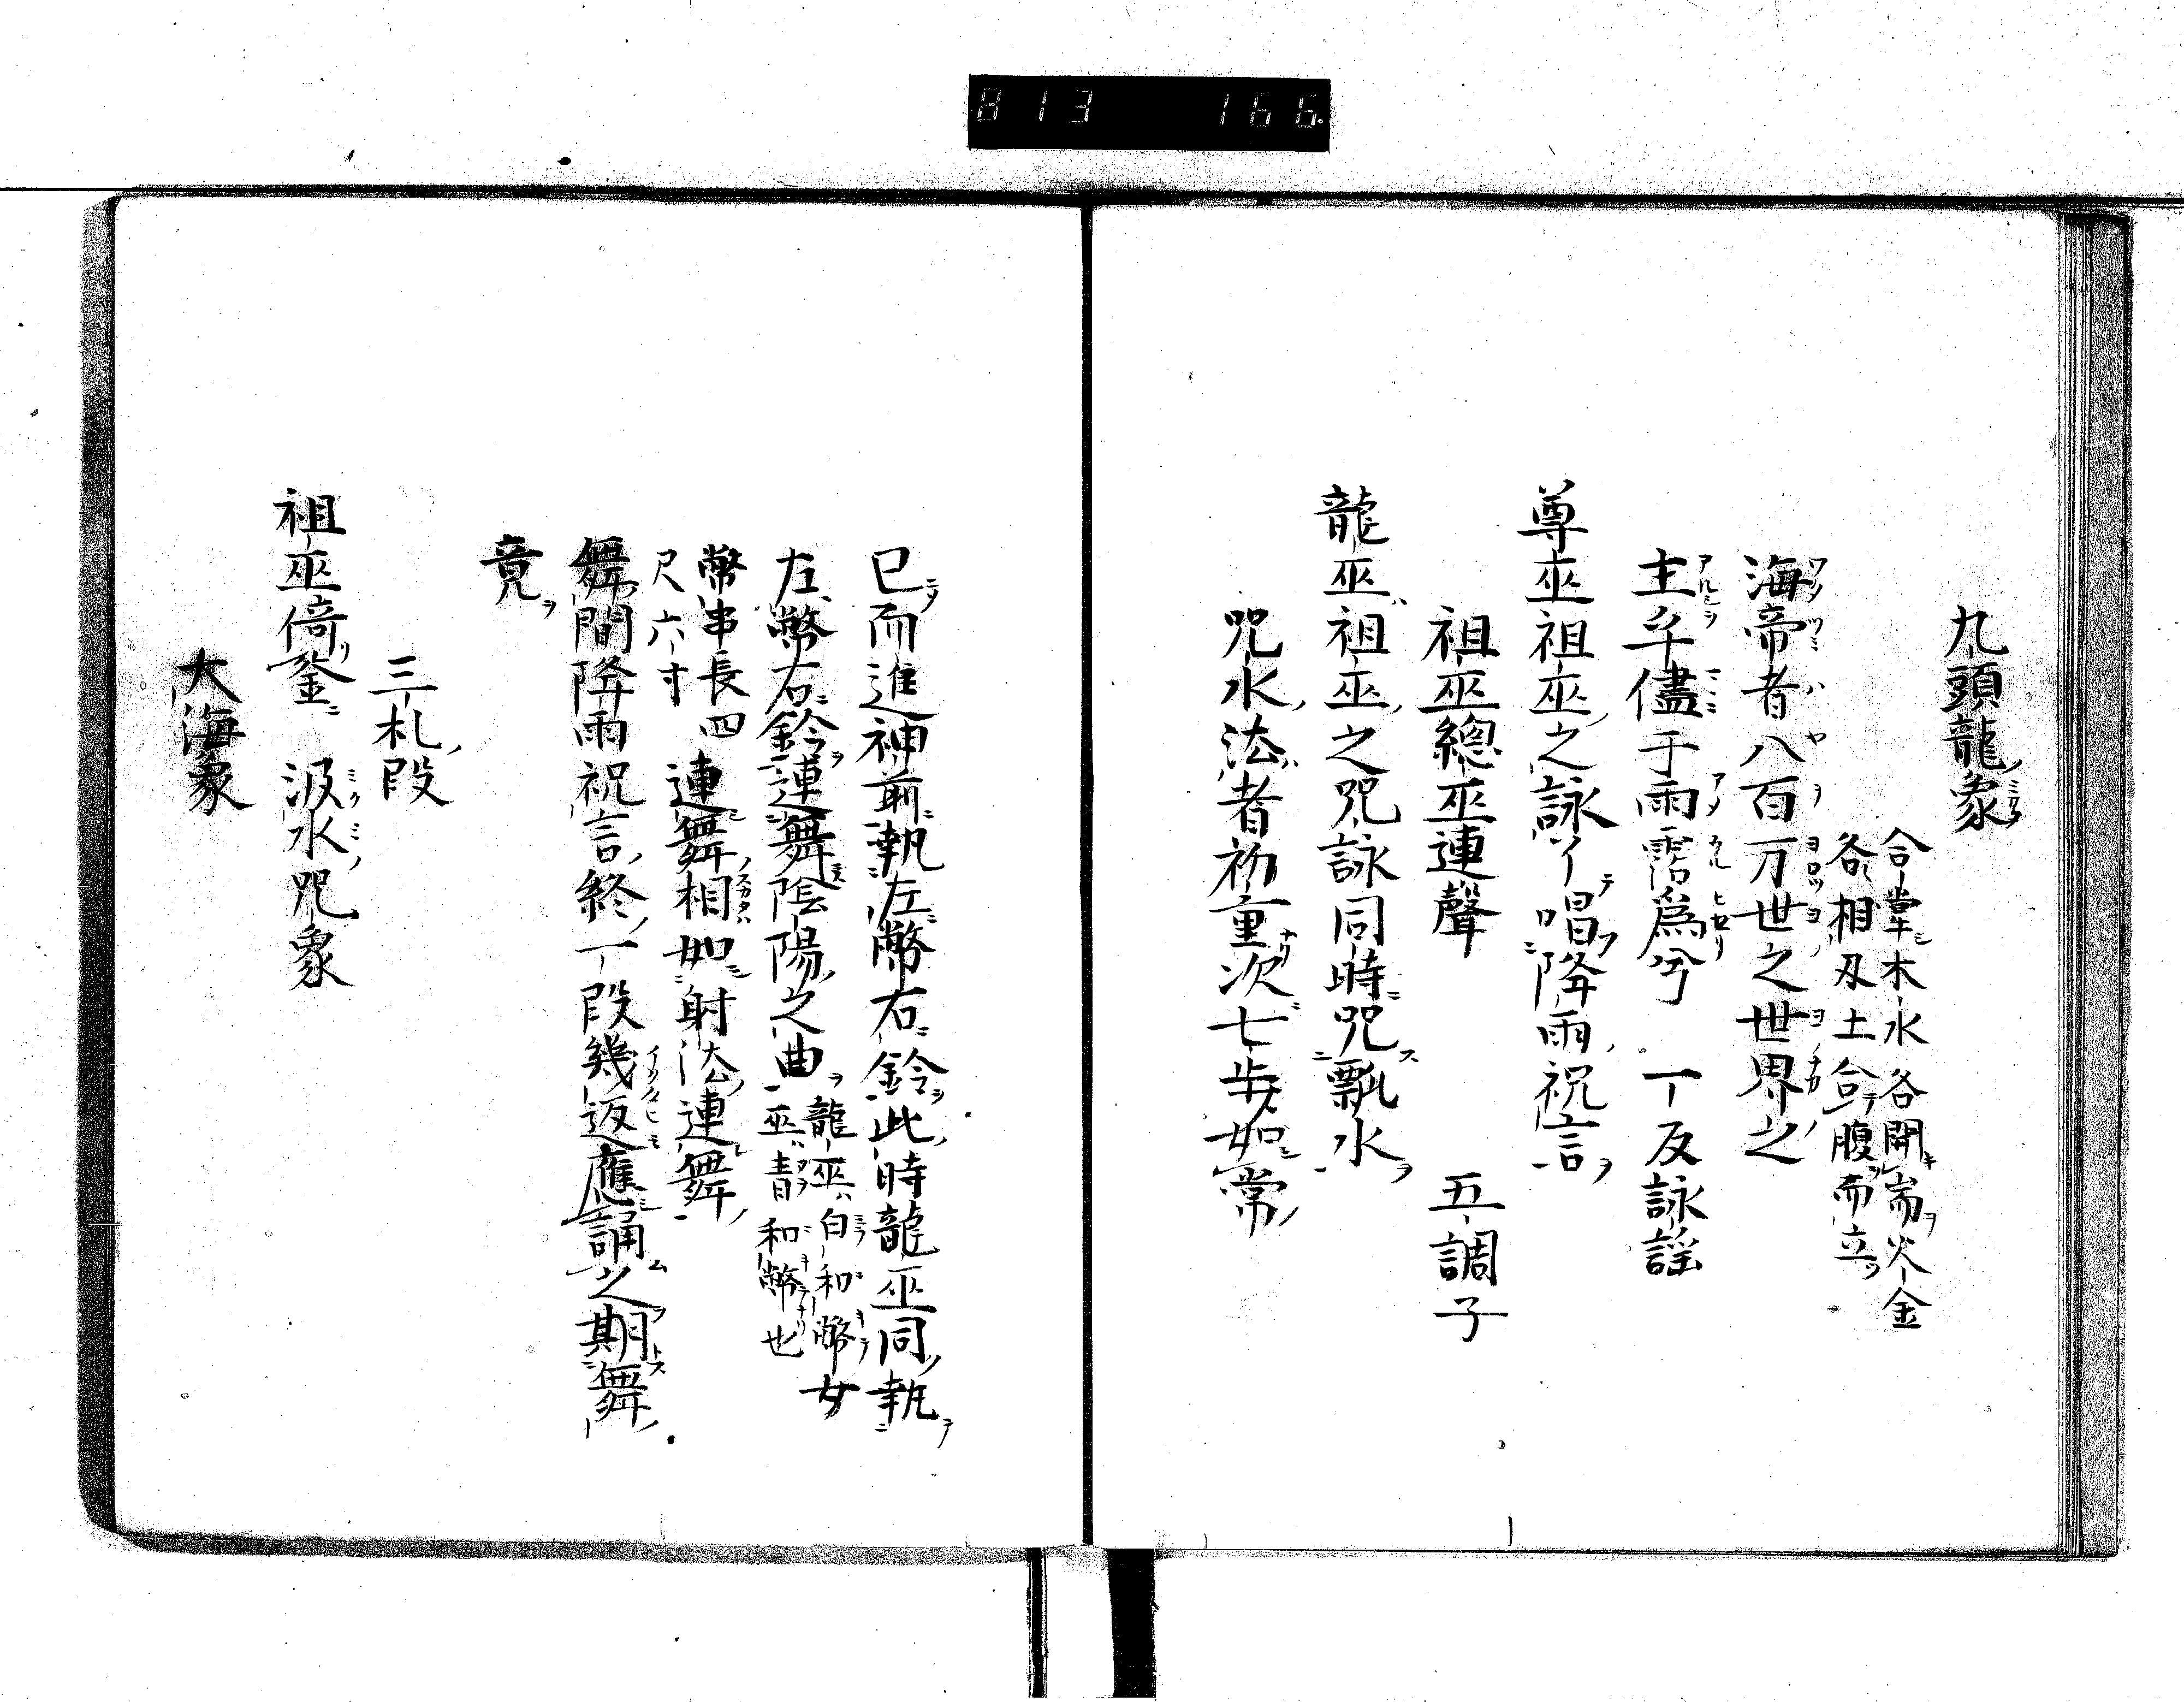 813 166.
九頭龍象
合掌木水各開耑火金
各相刄土合腹而立
海帝者八百万世之世界之
主乎儘于雨霑為兮 一反詠謡
尊巫祖巫之詠了唱降雨祝言
祖巫總巫連聲 五調子
龍巫祖巫之咒詠同時咒瓢水
咒水法者初重次七步如常
已而進神前執左幣右鈴此時龍巫同執
左幣右鈴連舞陰陽之曲 龍巫白和幣女
巫青和幣也
幣串長四
尺六寸
連舞相如射法連舞
舞間降雨祝言終一段幾返應誦之期舞
竟
三札段
祖巫倚釜 汲水咒象
大海象